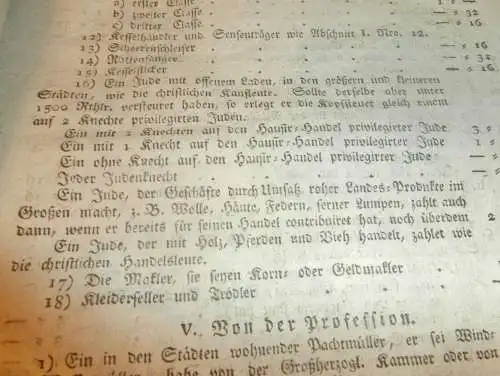 a) erster Classe
b) zweiter Classe
c) dritter Classe - = 32
12) Kesselhändler und Sensenträger wie Abschnitt I. Nro. 12. - = 16
13) Scheerenschleifer - = 16
14) Rattenfänger - = 32
15) Kesselflicker - = 16
16) Ein Jude mit offenem Laden, in den größern und kleinern
Städten, wie die christlichen Kaufleute. Sollte derselbe aber unter
1500 Rthlr. versteuret haben, so erlegt er die Kopfsteuer gleich einem
auf 2 Knechte privilegirten Juden.
Ein mit 2 Knechten auf den Hausir-Handel privilegirter Jude 3 =
Ein mit 1 Knecht auf den Hausir-Handel privilegirter Jude 1 =
Ein ohne Knecht auf den Hausir-Handel privilegirter Jude
Jeder Judenknecht
Ein Jude, der Geschäfte durch Umsatz roher Landes-Produkte im
Großen macht, z. B. Wolle, Häute, Federn, ferner Lumpen, zahlt auch
dann, wenn er bereits für seinen Handel contribuiret hat, noch überdem 2
Ein Jude, der mit Holz, Pferden und Vieh handelt, zahlet wie
die christlichen Handelsleute.
17) Die Makler, sie seyen Korn- oder Geldmakler
18) Kleiderseller und Trödler
V. Von der Profession.
1) Ein in den Städten wohnender Pachtmüller, er sei Wind-
habe von der Großherzogl. Kammer oder von